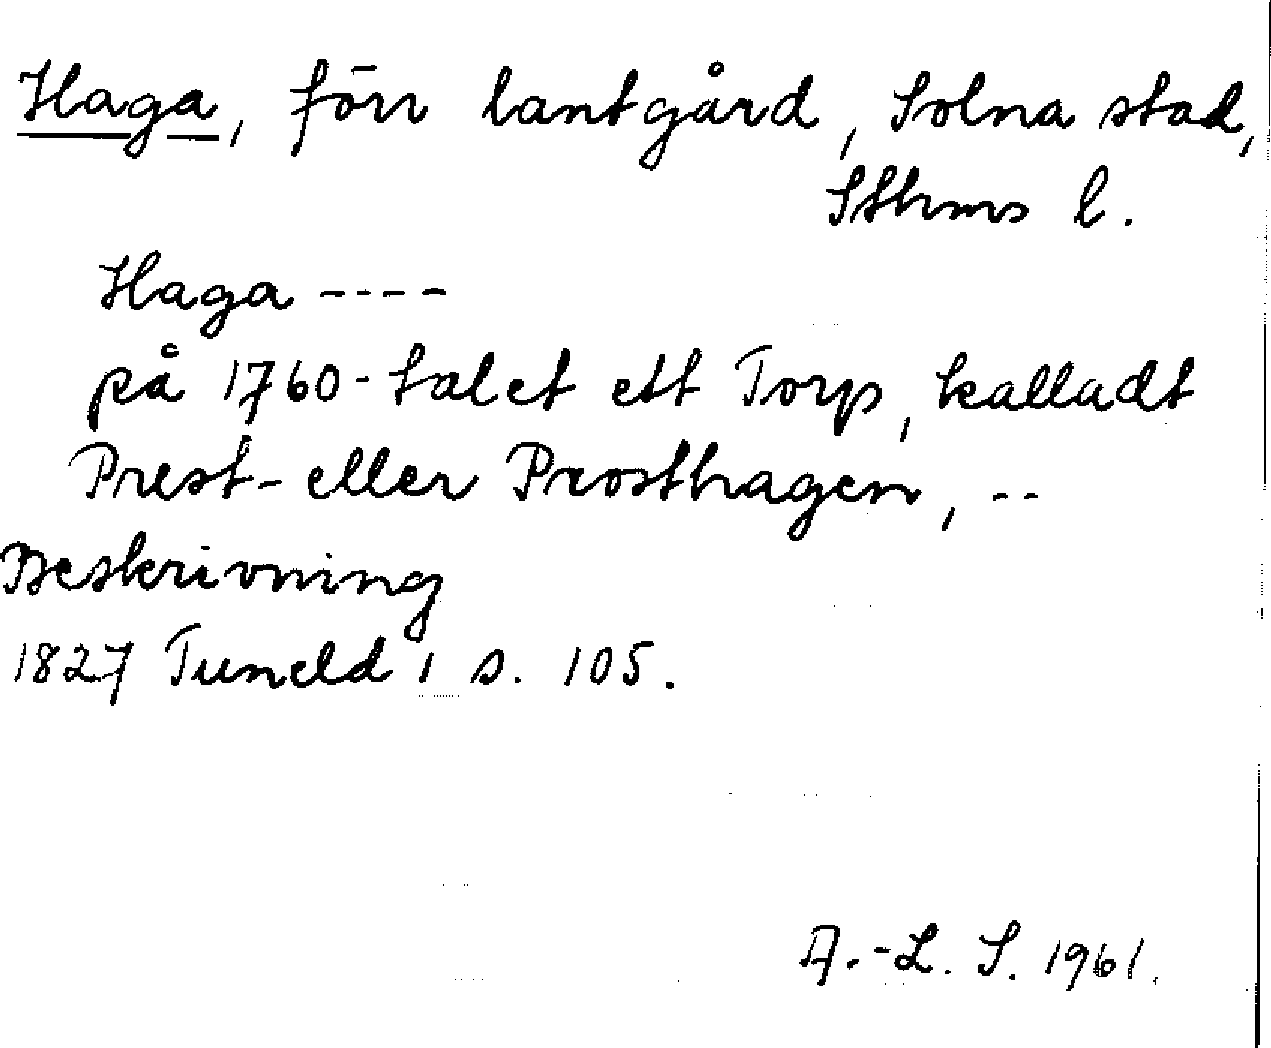 Haga, förr lantgård, Solna stad,
Sthms l.
Haga ----
på 1760-talet ett Torp, kalladt
Prest- eller Prosthagen, --
Beskrivning
1827 Tuneld 1 s. 105.
A.-L. S. 1961.